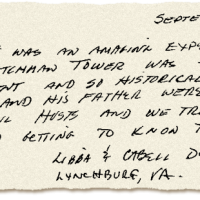 SEPTE
WAS AN AMAZING EXPE
TCHMAN TOWER WAS T
NT AND SO HISTORICAL
AND HIS FATHER WERE
L HOSTS AND WE TR
GETTING TO KNOW T
LIBBA & CABELL D
LYNCHBURG, VA.